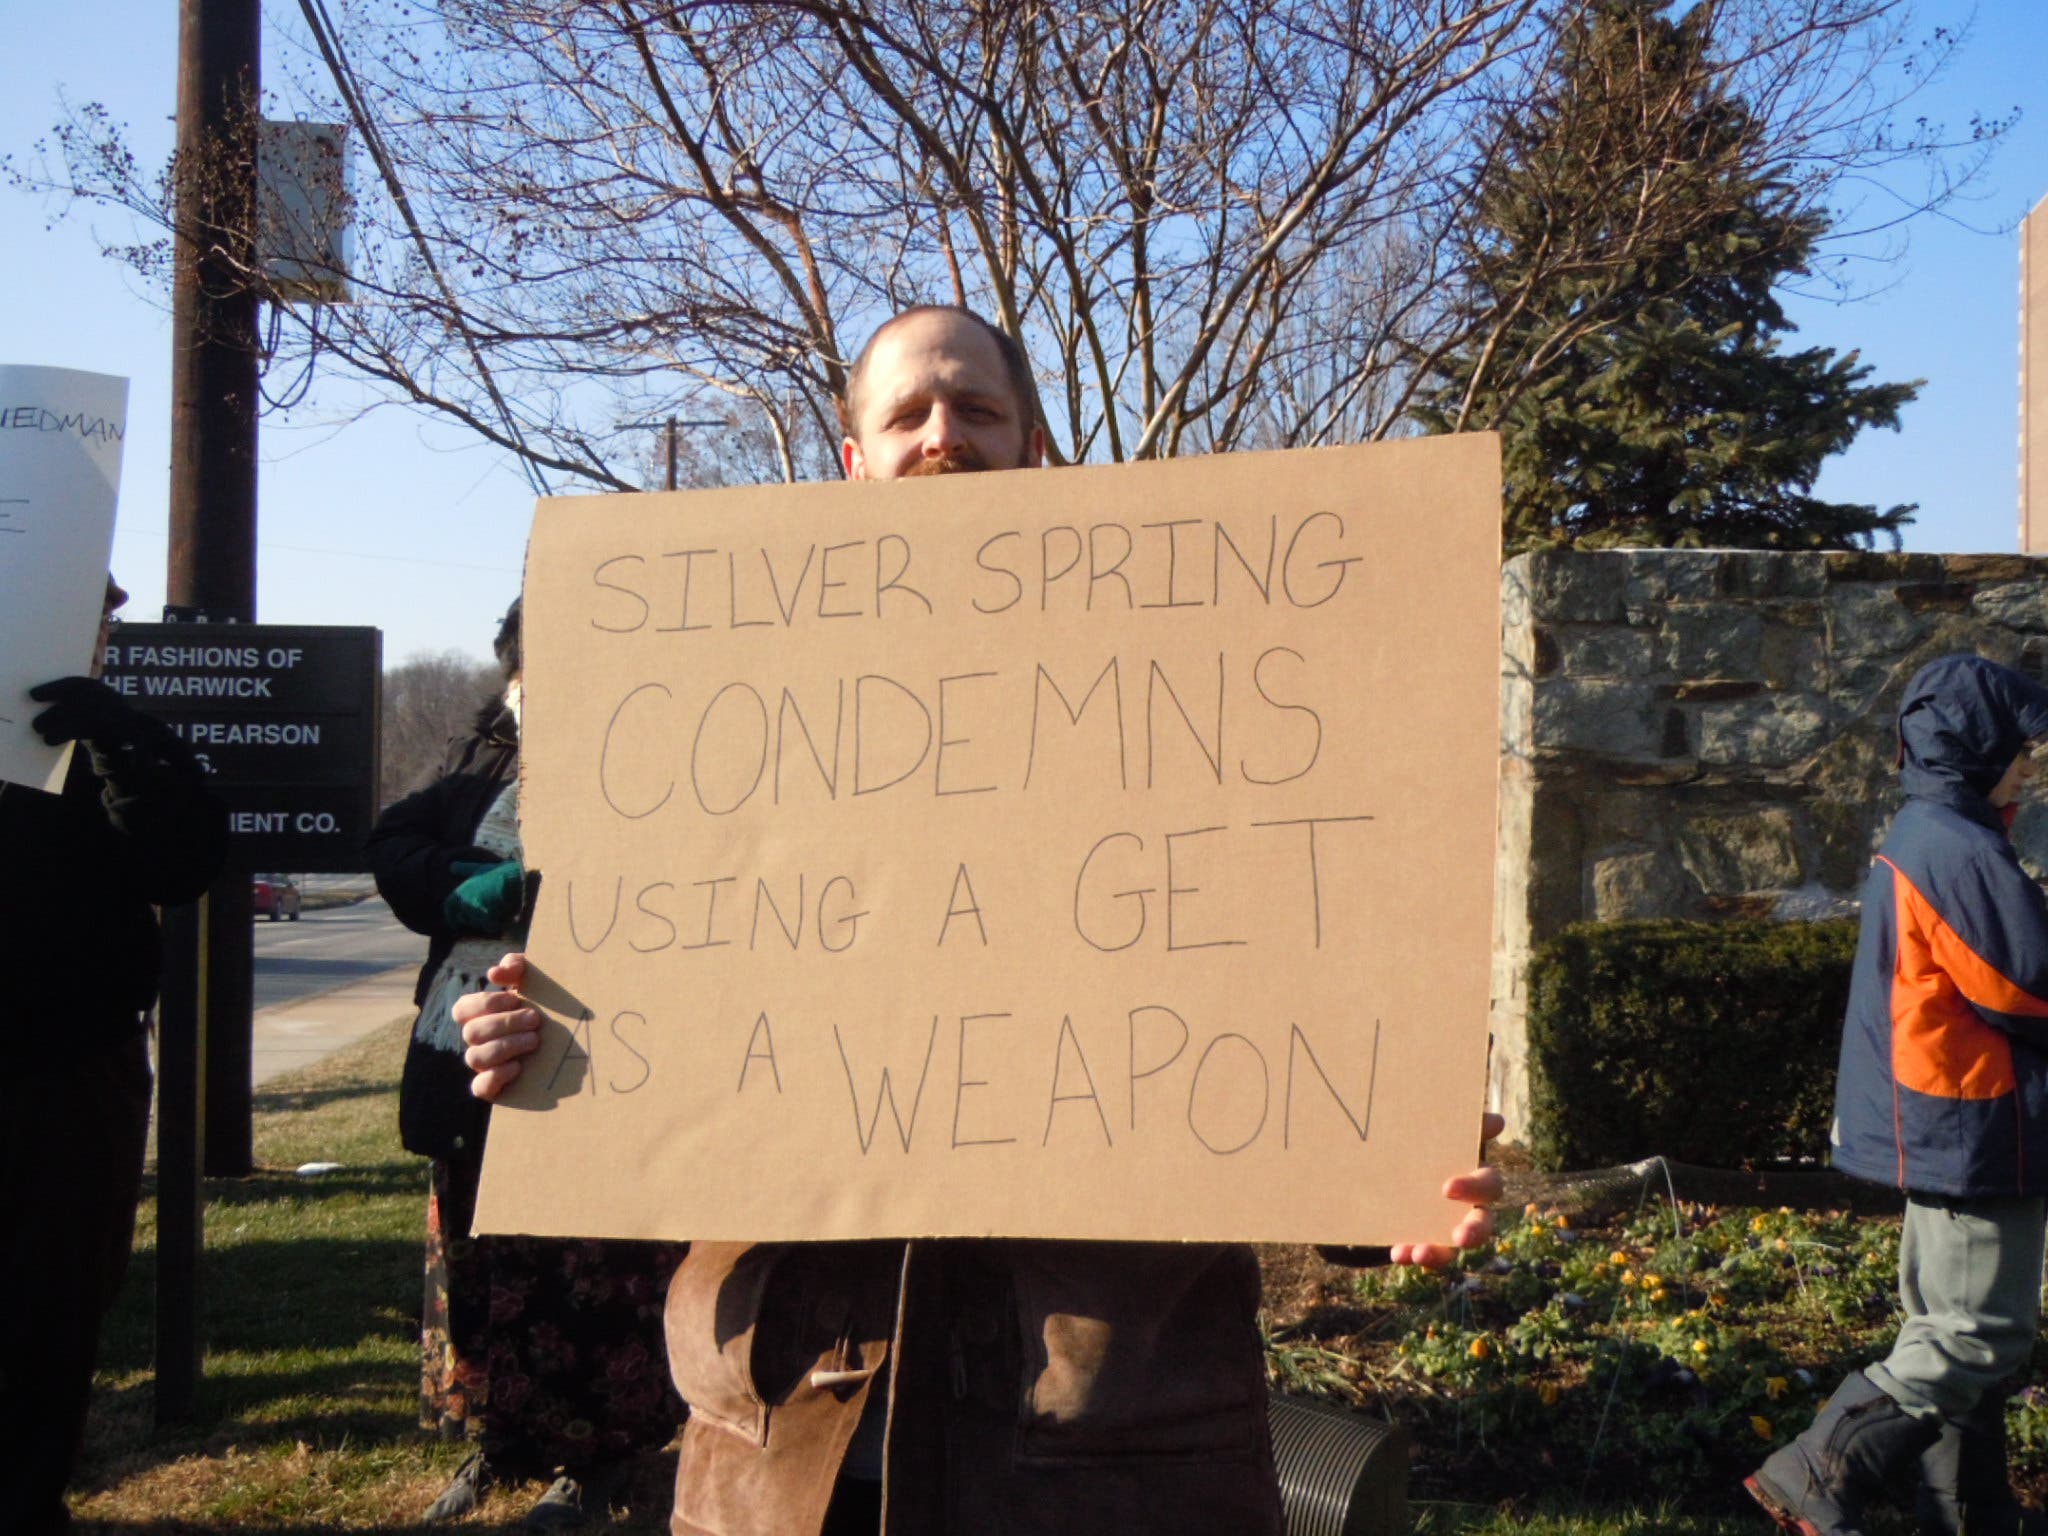 SILVER SPRING
CONDEMNS
USING A GET
AS A WEAPON
R FASHIONS OF
HE WARWICK
PEARSON
S.
MENT CO.
IEDMAN
E